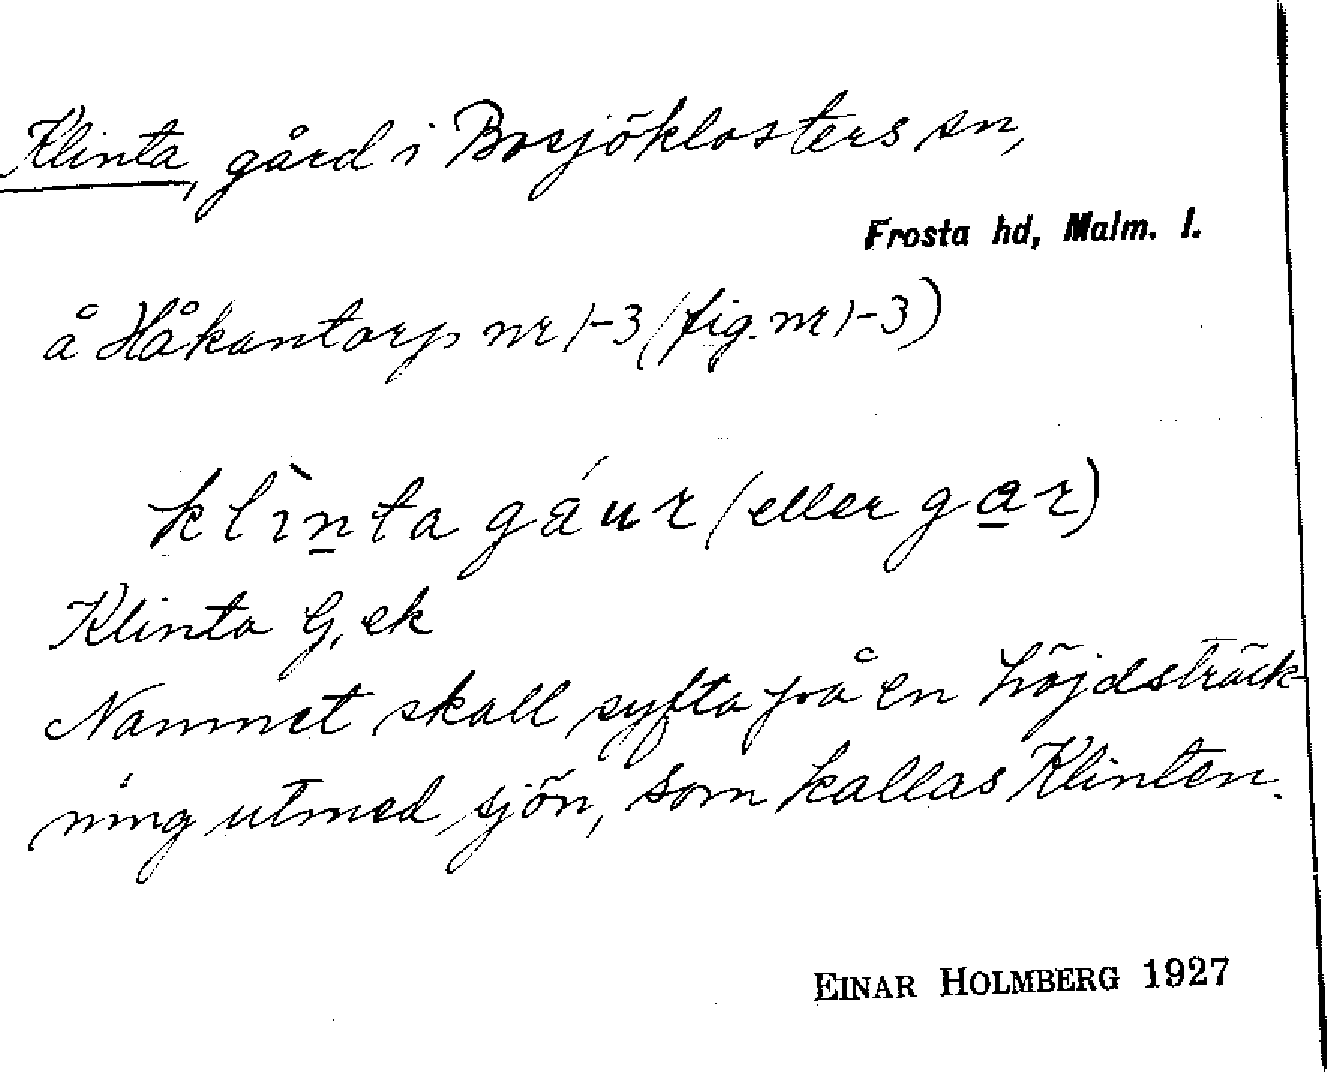 Klinta, gård i Bosjöklosters sn,
Frosta hd, Malm. l.
å Håkantorp nr 1-3 (fig. nr 1-3)
klìn̲ta gáur (eller ga̲r)
Klinta G, ek
Namnet skall syfta på en höjdsträck-
ning utmed sjön, som kallas Klinten.
EINAR HOLMBERG 1927